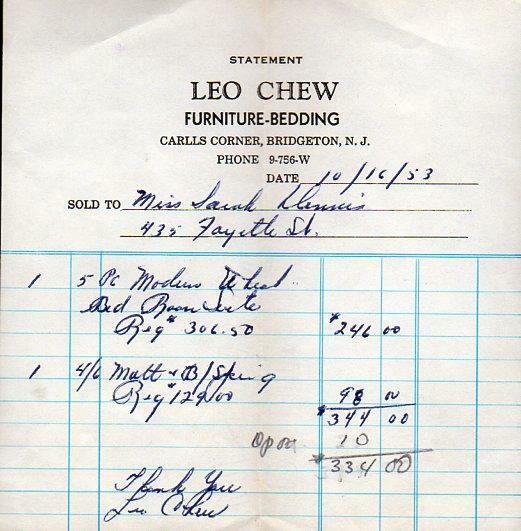 STATEMENT
LEO CHEW
FURNITURE-BEDDING
CARLLS CORNER, BRIDGETON, N. J.
PHONE 9-756-W
DATE 10/16/53
SOLD TO Miss Sarah Dennis
435 Fayette St.
1 5 Pc Modern Wheat
Bed Room Suite
Reg $ 306.50 $246 00
1 4/6 Matt & B/Spring
Reg $129.00 98 00
$344 00
10
$334 00
Thank You
Leo Chew